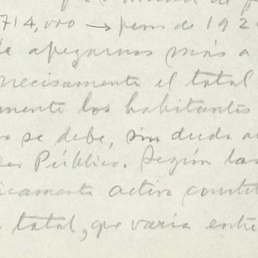 714,000 → pero de 192
de apegarnos más a
necisamente el total
mente los habitantes
o se debe, sin duda al
Público. Según las
icamente activa constit
total, que varía entre